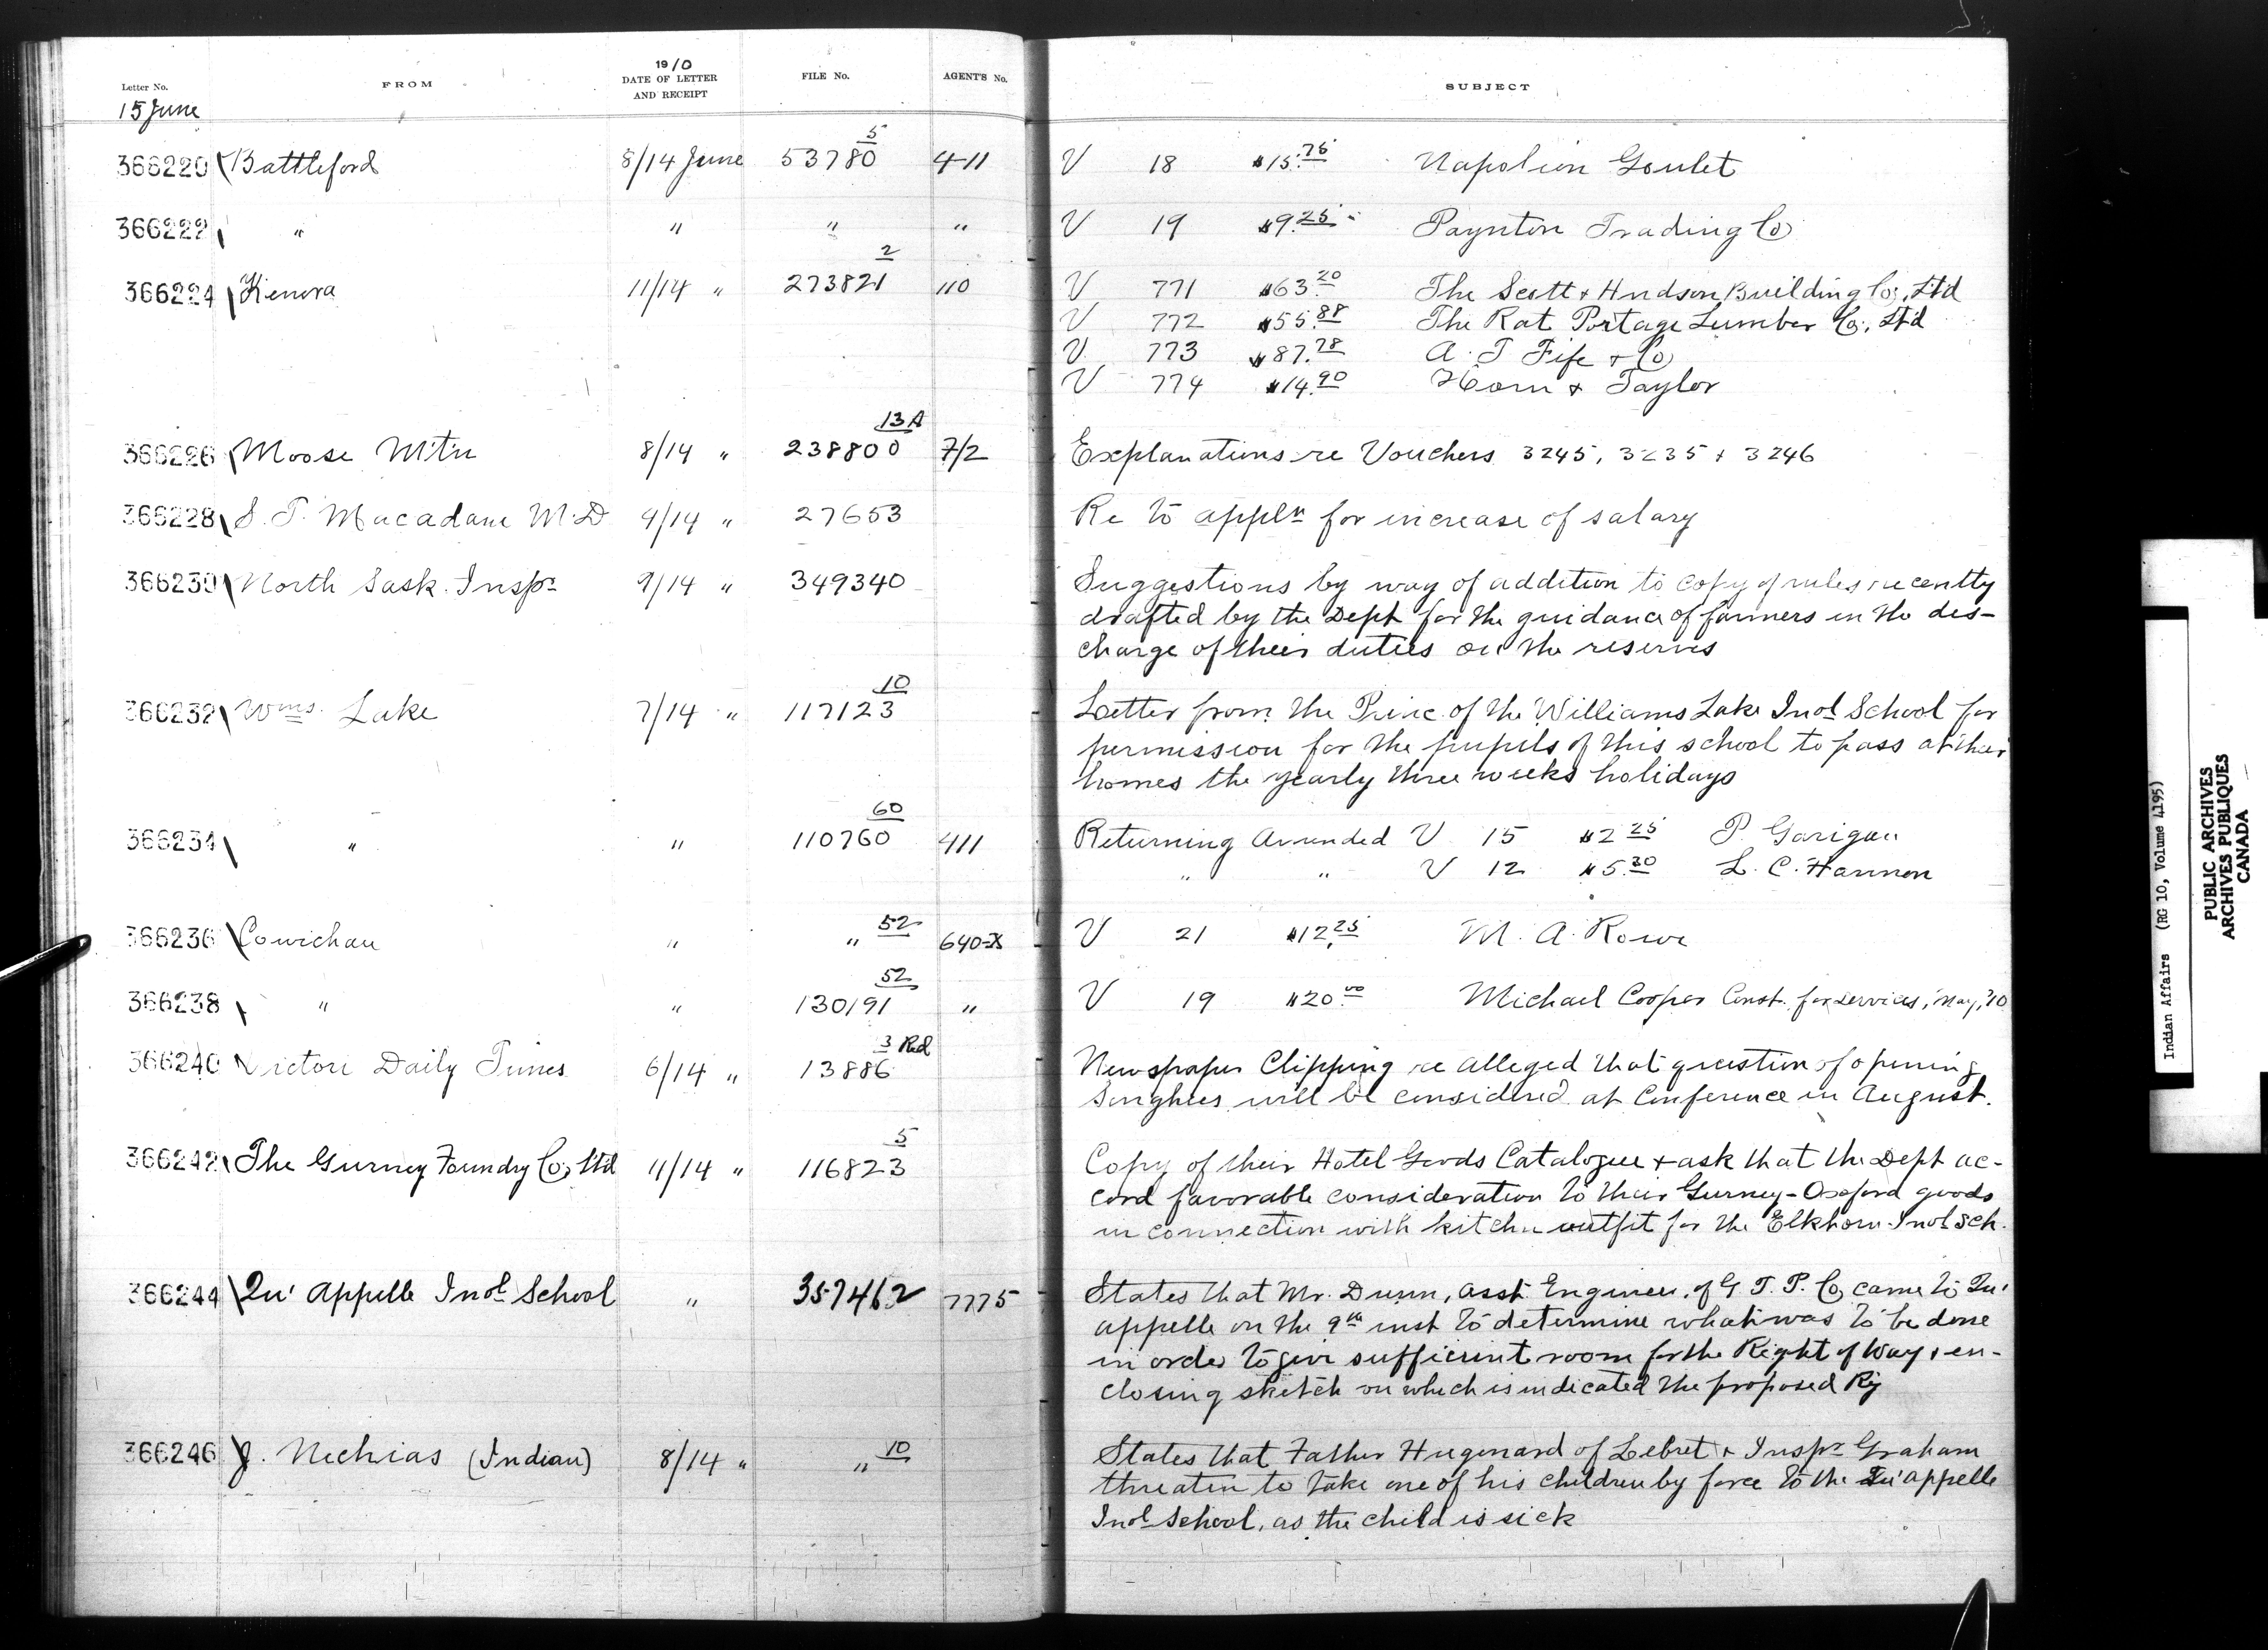 Letter No. FROM 1910 DATE OF LETTER AND RECEIPT FILE No. AGENT'S No. SUBJECT
15 June
366220 Battleford 8/14 June 53780 5 4-11 V 18 $15.75 Napoleon Goulet
366222 " " " " V 19 $9.25 Paynton Trading Co
366224 Kenora 11/14 " 273821 2 110 V 771 $63.20 The Scott & Hudson Building Co., Ltd
V 772 $55.88 The Rat Portage Lumber Co., Ltd
V 773 $87.78 A. T Fife & Co
V 774 $14.90 Horn & Taylor
366226 Moose Mtn 8/14 " 238800 13A 7/2 Explanations re Vouchers 3245, 3235 & 3246
366228 S. T. Macadam M.D 9/14 " 27653 Re to appln for increase of salary
366230 North Sask. Inspr 9/14 " 349340 Suggestions by way of addition to copy of rules recently
drafted by the Dept for the guidance of farmers in the des-
charge of their duties on the reserves
366232 Wms. Lake 7/14 " 117123 10 Letter from the Princ. of the Williams Lake Indl School for
permission for the pupils of this school to pass at their
homes the yearly three weeks holidays
366234 " " 110760 60 411 Returning Amended V 15 $2.25 P. Garigan
" " V 12 $5.30 L. C. Hannon
366236 Cowichan " " 52 640-X V 21 $12.25 M. A. Rowe
366238 " " 130191 52 " V 19 $20.00 Michael Cooper Const. for services, May, '10
366240 Victori Daily Times 6/14 " 13886 3 Red Newspaper Clipping re alleged that question of opening
Songhees will be considered at Conference in August.
366242 The Gurney Foundry Co, Ltd 11/14 " 116823 5 Copy of their Hotel Goods Catalogue & ask that the Dept ac-
cord favorable consideration to their Gurney-Oxford goods
in connection with kitchen outfit for the Elkhorn Indl Sch.
366244 Qu'Appelle Indl School " 357462 7775 States that Mr. Dunn, asst Engineer, of G T. P. Co, came to Qu'
appelle on the 9th inst to determine what was to be done
in order to give sufficient room for the Right of Way, & en-
closing sketch on which is indicated the proposed Ry
366246 J. Nechias (Indian) 8/14 " " 10 States that Father Hugonard of Lebret & Inspr Graham
threaten to take one of his children by force to the Qu'appelle
Indl School, as the child is sick
Indian Affairs (RG 10, Volume 4195)
PUBLIC ARCHIVES
ARCHIVES PUBLIQUES
CANADA